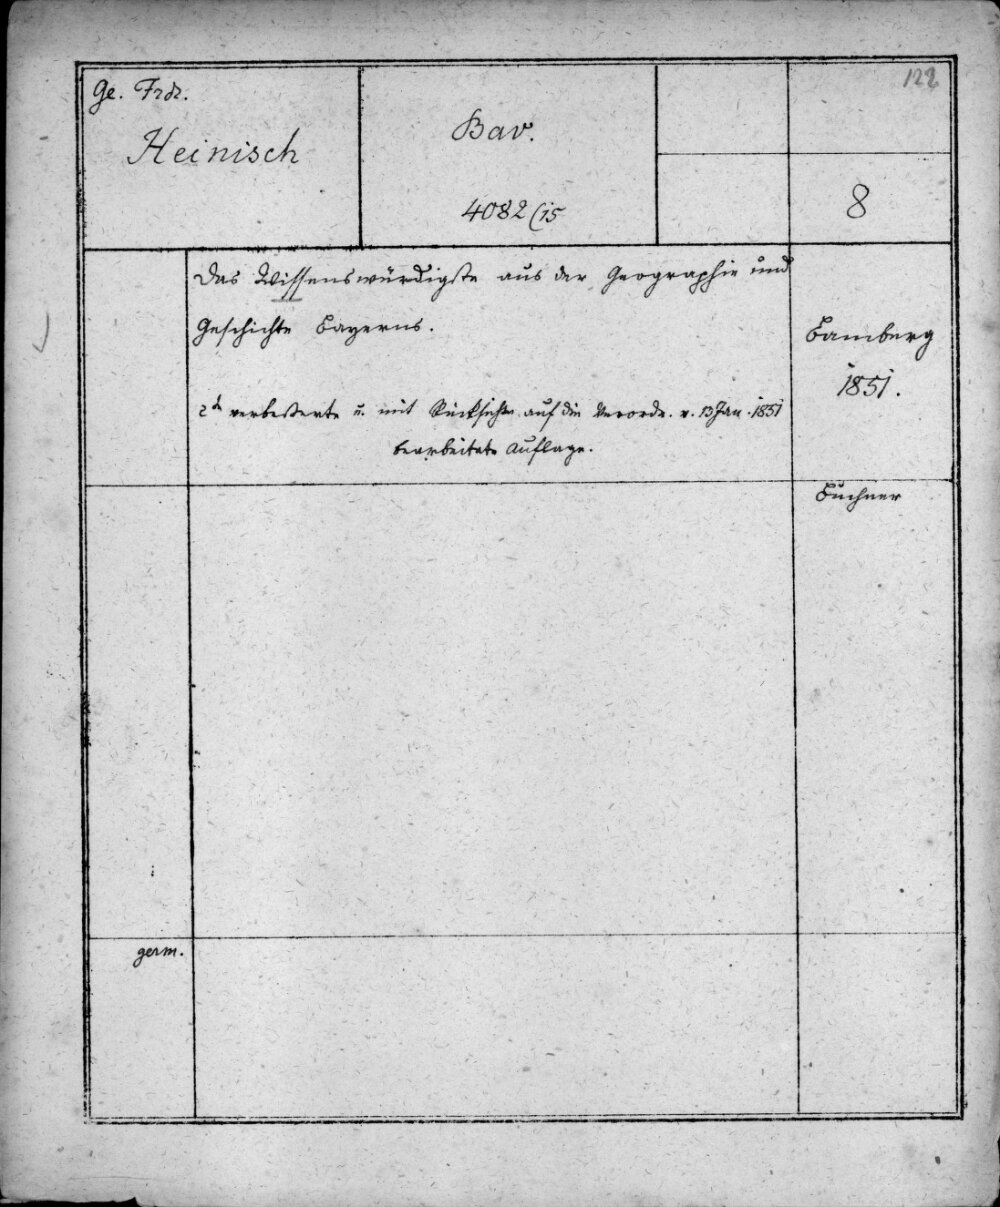 122
Ge. Frdr.
Heinisch
Bav.
4082 (15
8
Das Wissenswürdigste aus der Geographie und
Geschichte Bayerns.
2te verbesserte u. mit Rücksicht auf die Verordn. v. 13 Jan. 1851
bearbeitete Auflage.
Bamberg
1851.
Buchner
germ.